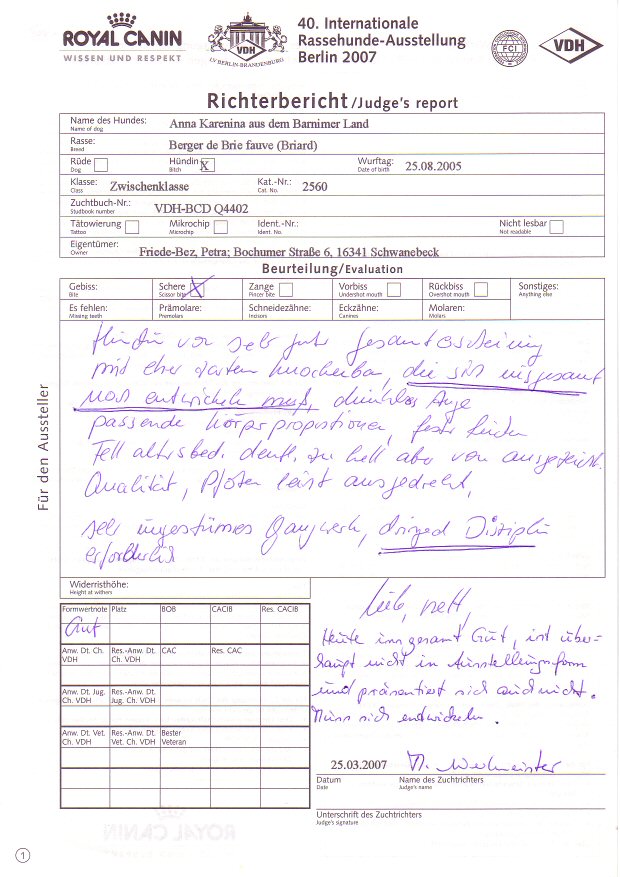 ROYAL CANIN
WISSEN UND RESPEKT
VDH
LV BERLIN-BRANDENBURG
40. Internationale
Rassehunde-Ausstellung
Berlin 2007
FCI
VDH
Richterbericht/Judge's report
Name des Hundes: Anna Karenina aus dem Barnimer Land
Name of dog
Rasse: Berger de Brie fauve (Briard)
Breed
Rüde Hündin X Wurftag: 25.08.2005
Dog Bitch Date of birth
Klasse: Zwischenklasse Kat.-Nr.: 2560
Class Cat. No.
Zuchtbuch-Nr.: VDH-BCD Q4402
Studbook number
Tätowierung Mikrochip Ident.-Nr.: Nicht lesbar
Tattoo Microchip Ident. No. Not readable
Eigentümer: Friede-Bez, Petra; Bochumer Straße 6, 16341 Schwanebeck
Owner
Beurteilung/Evaluation
Gebiss: Schere X Zange Vorbiss Rückbiss Sonstiges:
Bite Scissor bite Pincer bite Undershot mouth Overshot mouth Anything else
Es fehlen: Prämolare: Schneidezähne: Eckzähne: Molaren:
Missing teeth Premolars Incisors Canines Molars
Für den Aussteller
Hündin von sehr guter Gesamterscheinung
mit eher zarten Knochenbau, die sich insgesamt
noch entwickeln muß, dunkles Auge
passende Körperproportionen, fester Rücken
Fell altersbed. deutl. zu hell aber von ausgezeich.
Qualität, Pfoten leicht ausgedreht,
sehr ungestümes Gangwerk, dringend Disziplin
erforderlich
Widerristhöhe:
Height at withers
Formwertnote Platz BOB CACIB Res. CACIB
Gut
Anw. Dt. Ch. VDH Res.-Anw. Dt. Ch. VDH CAC Res. CAC
Anw. Dt. Jug. Ch. VDH Res.-Anw. Dt. Jug. Ch. VDH
Anw. Dt. Vet. Ch. VDH Res.-Anw. Dt. Vet. Ch. VDH Bester Veteran
Lieb, nett,
Heute insgesamt Gut, ist über-
haupt nicht in Ausstellungsform
und präsentiert sich auch nicht.
Muss sich entwickeln.
25.03.2007
Datum Name des Zuchtrichters
Date Judge's name
Unterschrift des Zuchtrichters
Judge's signature
ROYAL CANIN
1